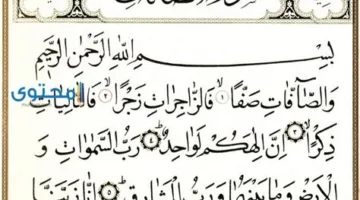 بِسْمِ اللّٰهِ الرَّحْمٰنِ الرَّحٖيمِ
وَالصَّٓافَّاتِ صَفًّاۙ ﴿١﴾ فَالزَّاجِرَاتِ زَجْرًاۙ ﴿٢﴾ فَالتَّالِيَاتِ
ذِكْرًاۙ ﴿٣﴾ اِنَّ اِلٰهَكُمْ لَوَاحِدٌۜ ﴿٤﴾ رَبُّ السَّمٰوَاتِ وَ
الْاَرْضِ وَمَا بَيْنَهُمَا وَرَبُّ الْمَشَارِقِۜ ﴿٥﴾ اِنَّا زَيَّنَّا
المحتوى